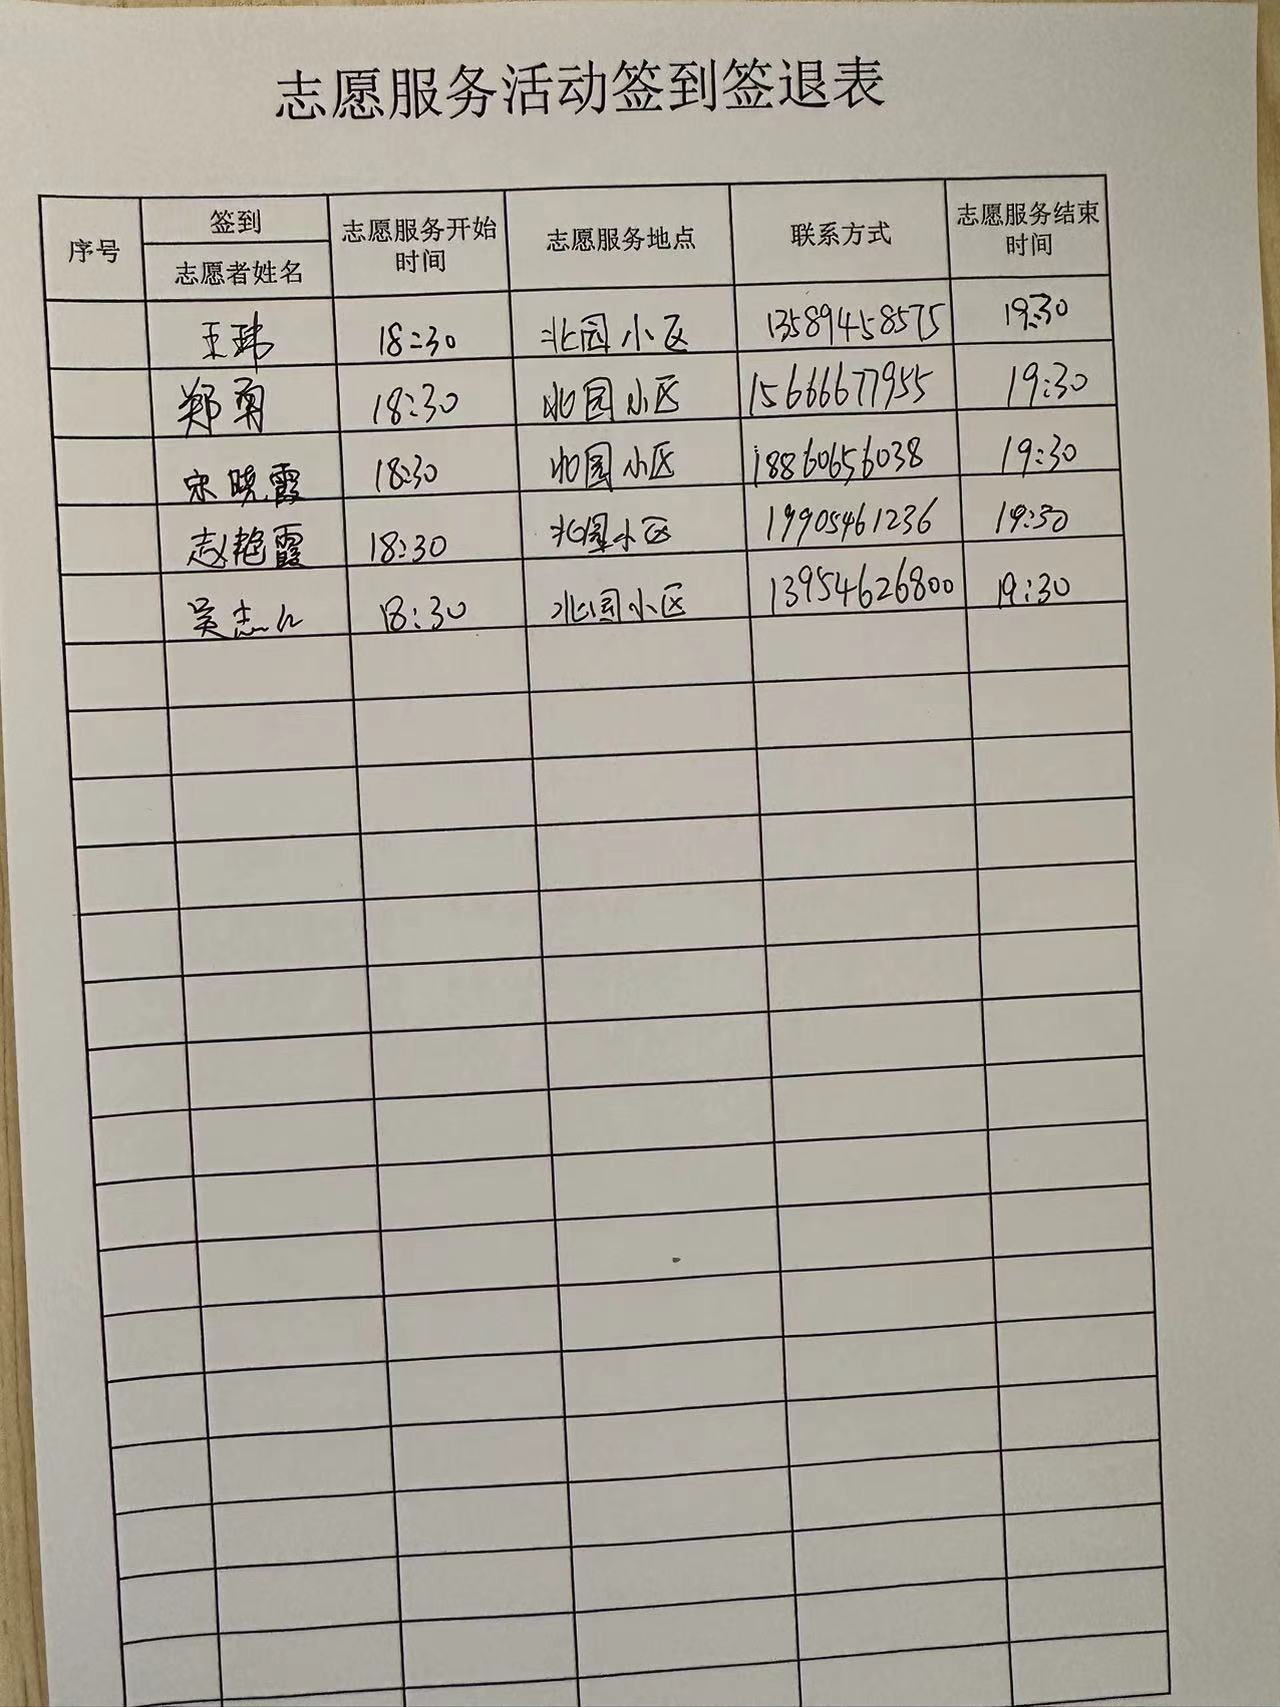 志愿服务活动签到签退表
序号 签到 志愿者姓名 志愿服务开始时间 志愿服务地点 联系方式 志愿服务结束时间
王玮 18:30 北园小区 13589458575 19:30
郑勇 18:30 北园小区 15666677955 19:30
宋晓霞 18:30 北园小区 18860656038 19:30
赵艳霞 18:30 北园小区 19905461236 19:30
吴志 18:30 北园小区 13954626800 19:30